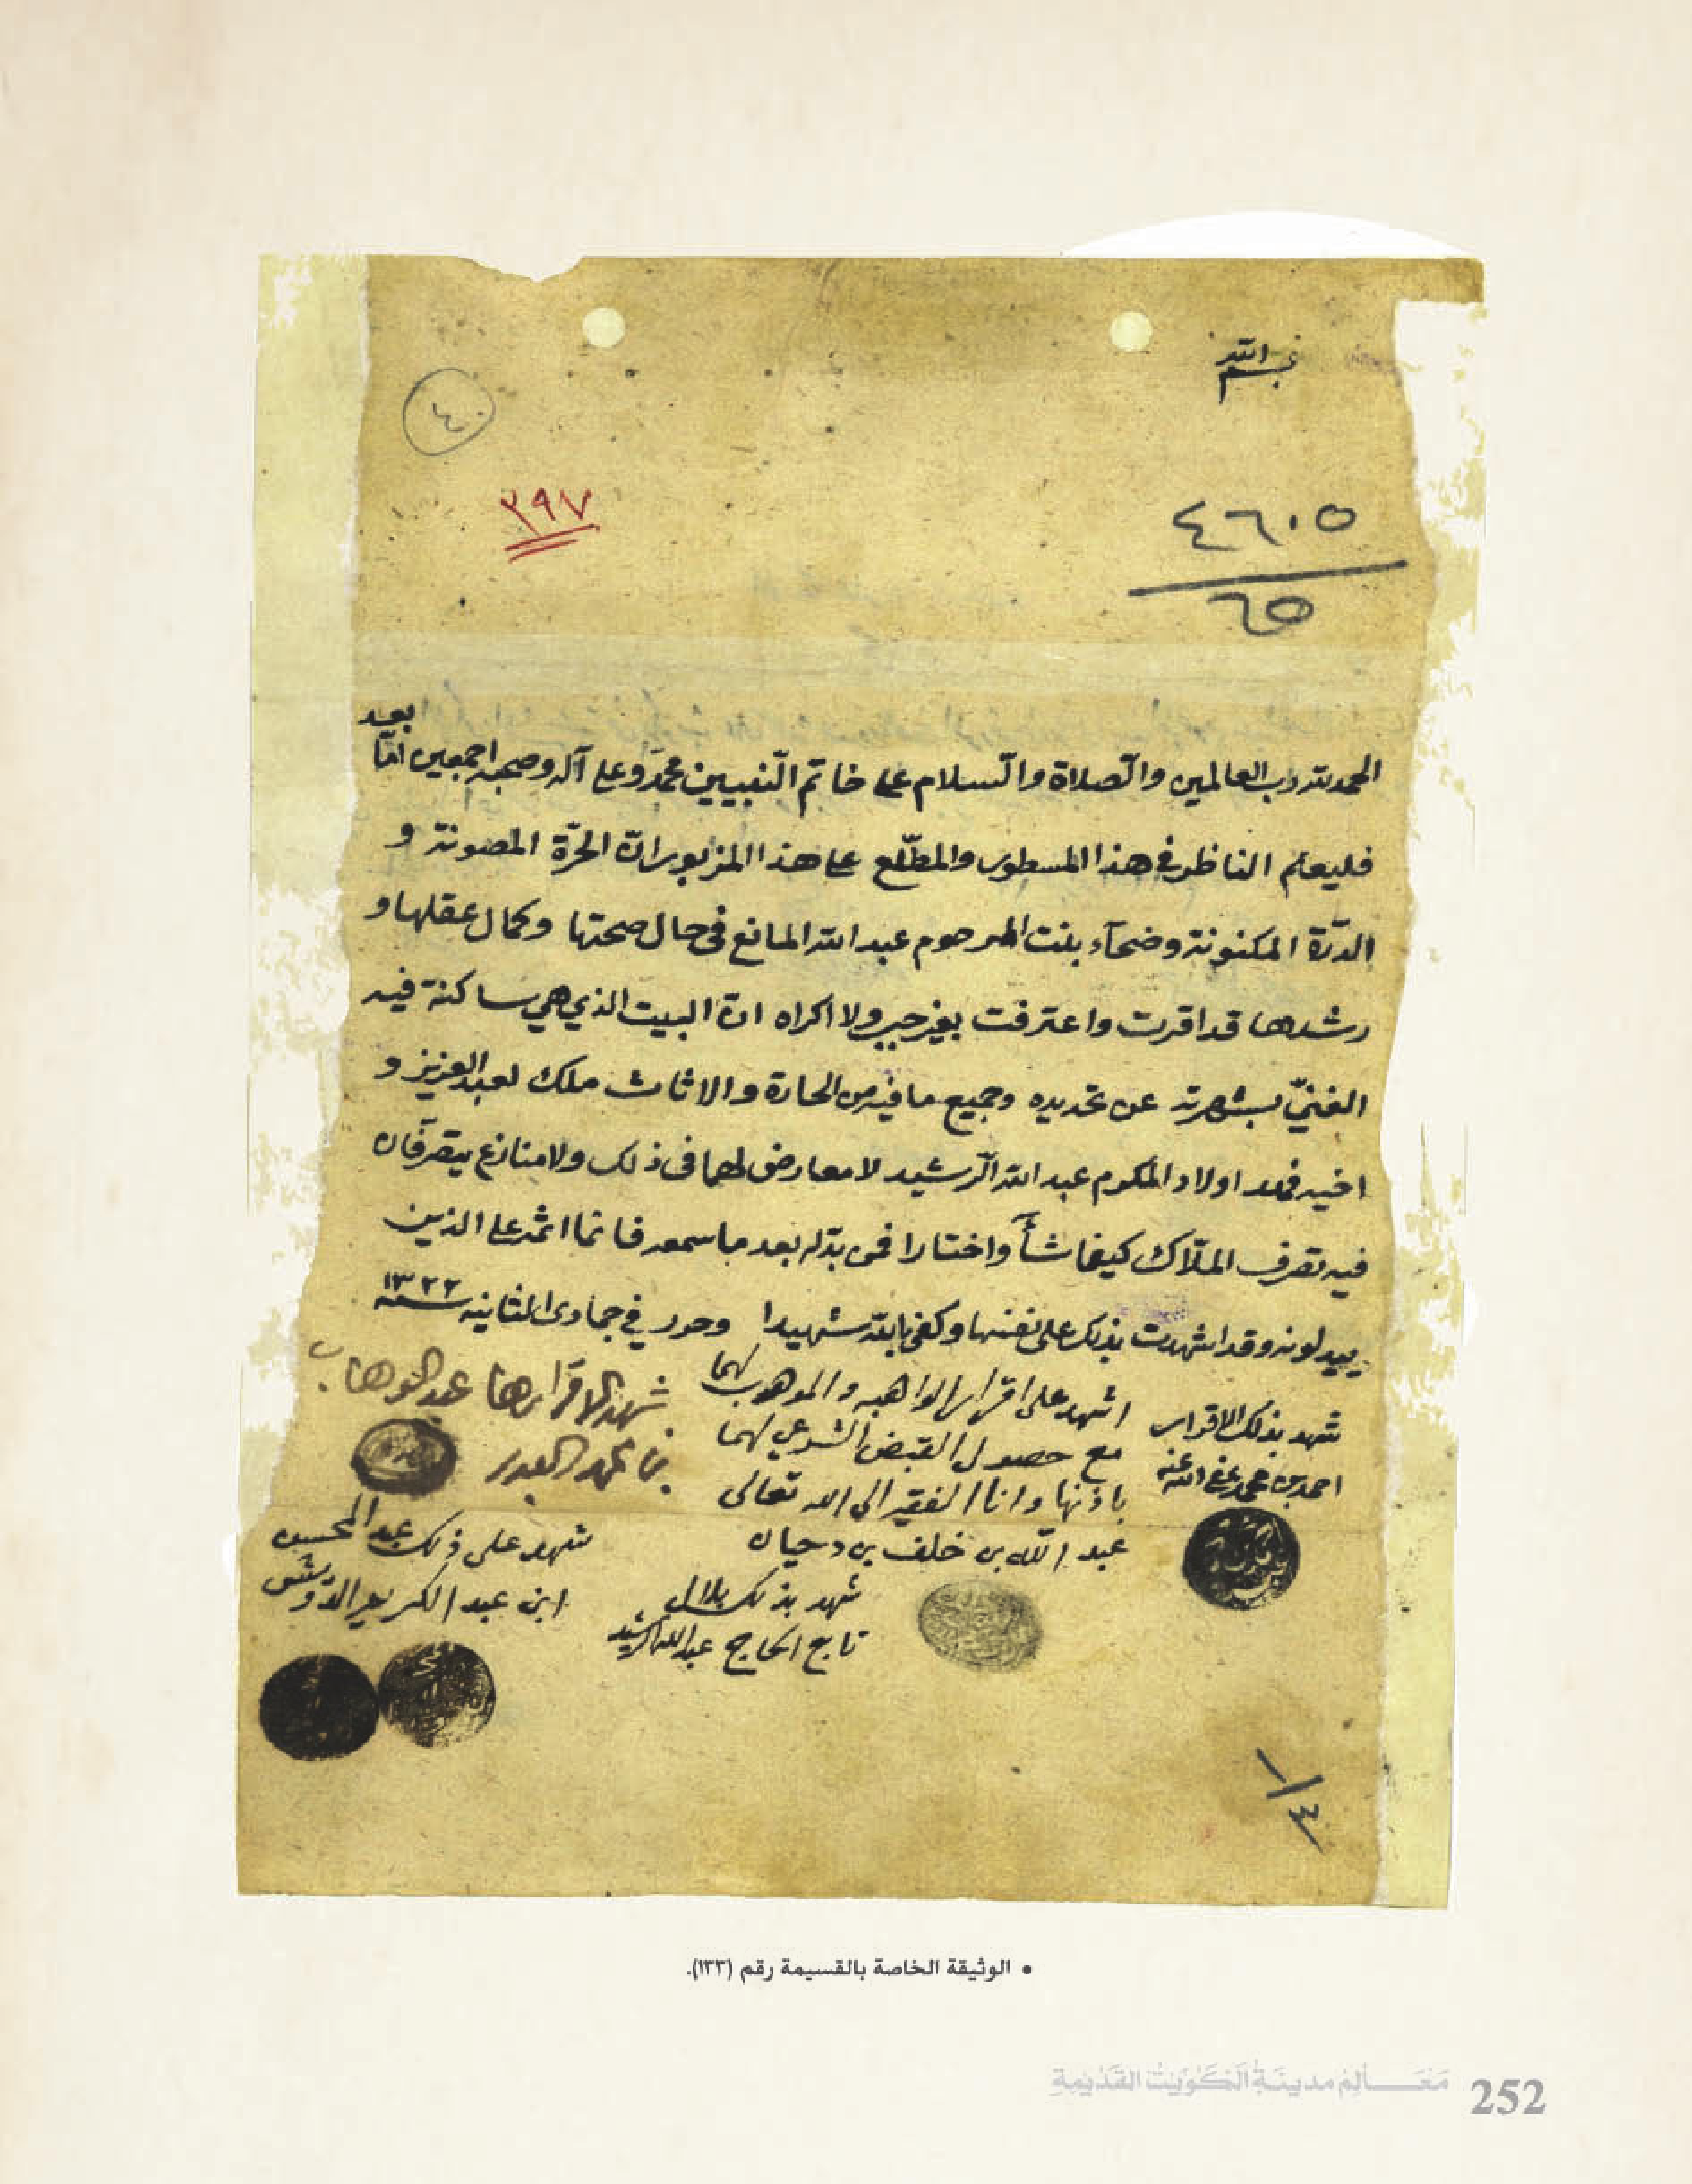 بسم الله
٤٠
٣٩٧
٤٦٠٥
٦٥
الحمد لله رب العالمين والصّلاة والسّلام على خاتم النّبيين محمّد وعلى آله وصحبه اجمعين امّا بعد
فليعلم الناظر في هذا المسطور والمطّلع على هذا المزبور انّ الحرّة المصونة و
الدّرّة المكنونة وضحآء بنت المرحوم عبد الله المانع في حال صحتها وكمال عقلها و
رشدها قد اقرت واعترفت بغير جبر ولا اكراه انّ البيت الذي هي ساكنة فيه
الغنيّ بشهرته عن تحديده وجميع ما فيه من الحارة والاثاث ملك لعبد العزيز و
اخيه فهد اولاد المكرم عبد الله الرّشيد لا معارض لهما في ذلك ولا منازع يتصرّفان
فيه تصرف الملّاك كيفما شأآ واختارا فمن بدّله بعد ما سمعه فانما اثمه على الذين
يبدلونه وقد اشهدت بذلك على نفسها وكفى بالله شهيدا وحرر في جمادى الثانيه سنة ١٣٢٢
شهد بذلك الاقرار
احمد بن محمد عفى الله عنه
اشهد على اقرار الواهبه والموهوب لهما
مع حصول القبض الشرعي لهما
باذنها وانا الفقير الى الله تعالى
عبد الله بن خلف بن دحيان
شهد الاقرارها عبد الوهاب
بن محمد البدر
شهد على ذلك عبد المحسن
ابن عبد الكريم الدّويش
شهد بذلك بلال
تابع الحاج عبد الله الرشيد
١/٣
• الوثيقة الخاصة بالقسيمة رقم (١٣٣).
مَعَـالِم مدينَة الكُوَيْت القَدِيمة
252